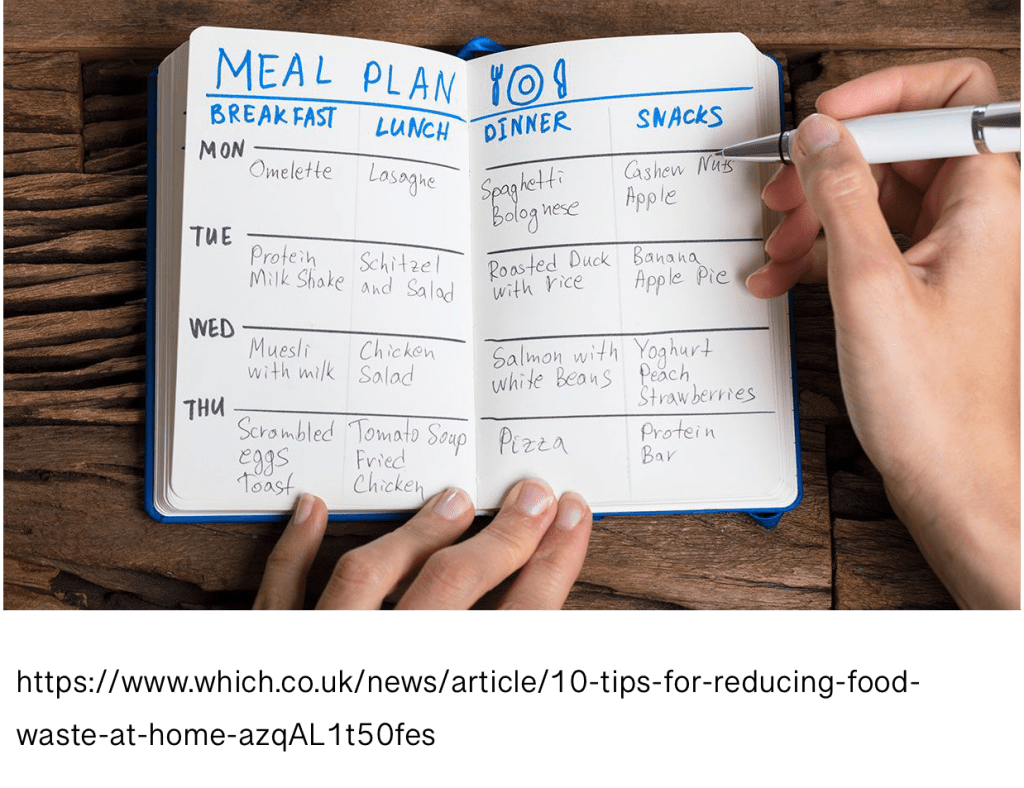 MEAL PLAN
BREAKFAST LUNCH DINNER SNACKS
MON
Omelette
Lasaghe
Spaghetti
Bolognese
Cashew Nuts
Apple
TUE
Protein
Milk Shake
Schitzel
and Salad
Roasted Duck
with rice
Banana
Apple Pie
WED
Muesli
with milk
Chicken
Salad
Salmon with
white Beans
Yoghurt
Peach
Strawberries
THU
Scrambled
eggs
Toast
Tomato Soup
Fried
Chicken
Pizza
Protein
Bar
https://www.which.co.uk/news/article/10-tips-for-reducing-food-
waste-at-home-azqAL1t50fes